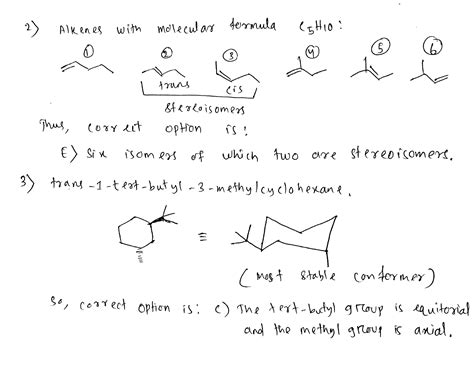 2) Alkenes with molecular formula C5H10:
① ② ③ ④ ⑤ ⑥
trans cis
stereoisomers
Thus, correct option is:
E) Six isomers of which two are stereoisomers.
3) trans-1-tert-butyl-3-methylcyclohexane.
≡
(most stable conformer)
So, correct option is: C) The tert-butyl group is equitorial
and the methyl group is axial.